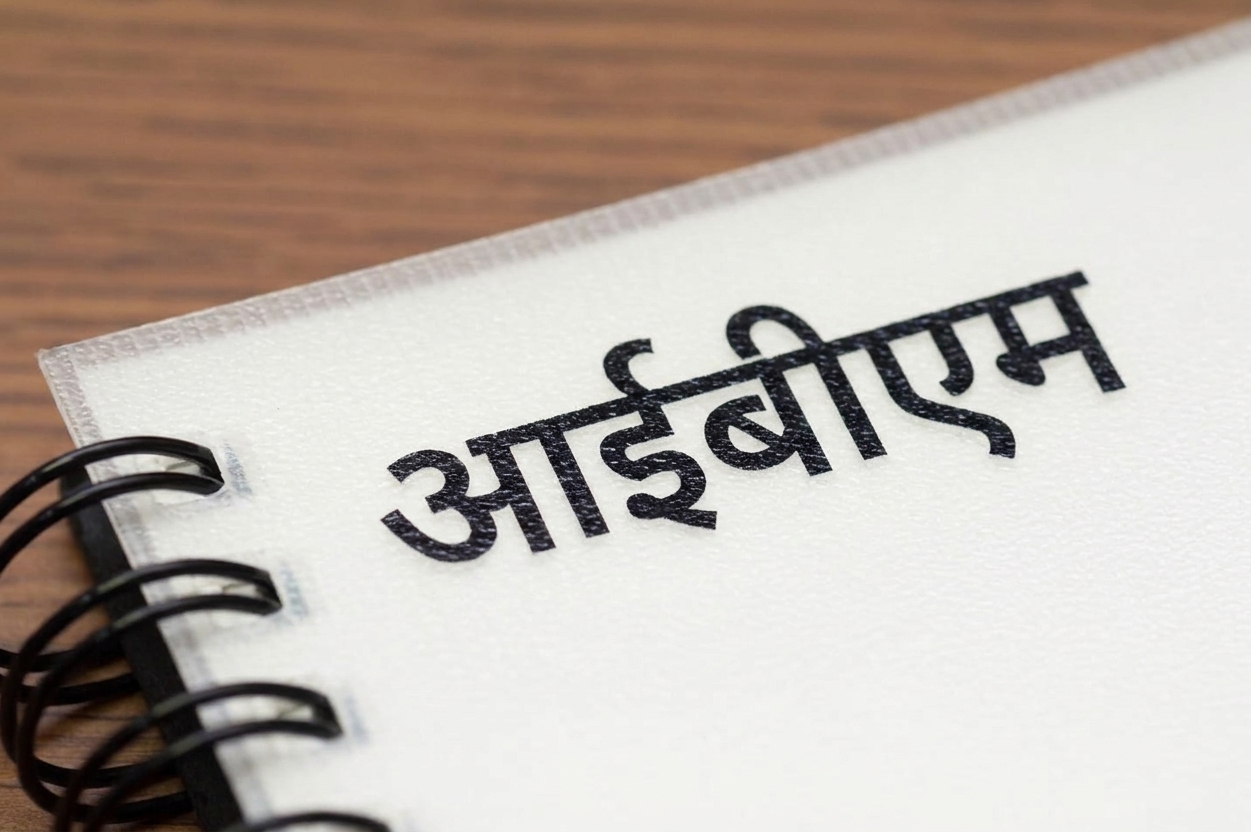 आईबीएम